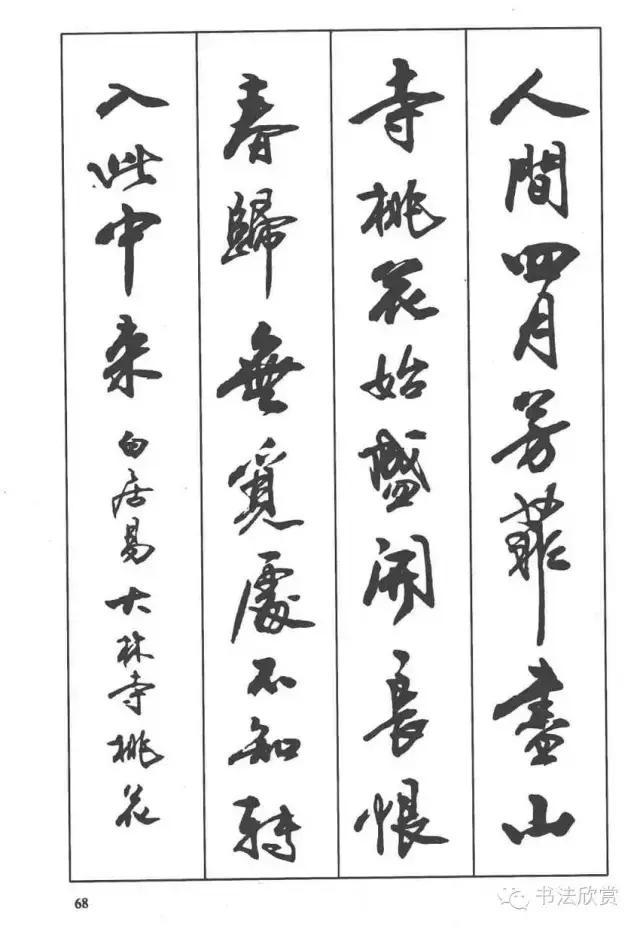 人間四月芳菲盡山
寺桃花始盛開長恨
春歸無覓處不知轉
入此中来白居易大林寺桃花
68
书法欣赏